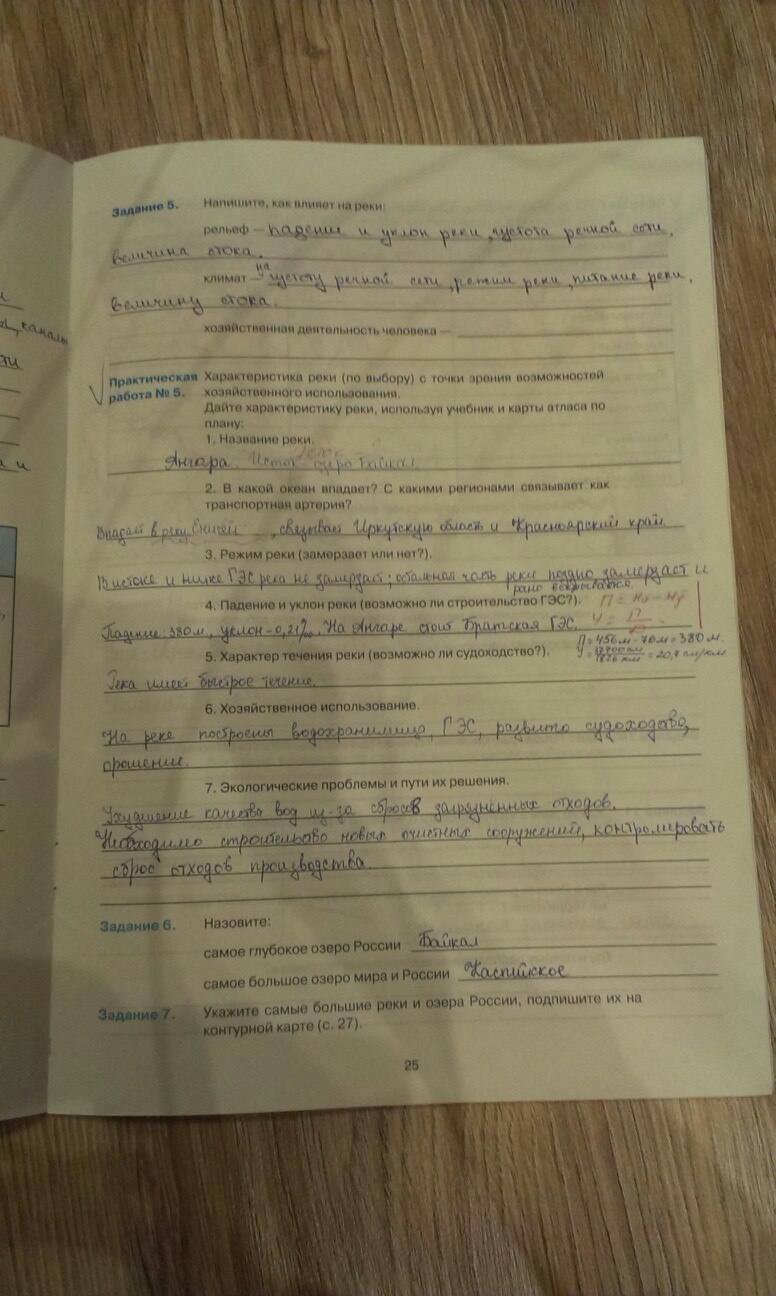 Задание 5. Напишите, как влияет на реки:
рельеф – падение и уклон реки, густота речной сети,
величина стока.
климат – на густоту речной сети, режим реки, питание реки,
величину стока.
хозяйственная деятельность человека –
каналы
Практическая работа № 5. Характеристика реки (по выбору) с точки зрения возможностей
хозяйственного использования.
Дайте характеристику реки, используя учебник и карты атласа по
плану:
1. Название реки.
Ангара. Исток озеро Байкал
2. В какой океан впадает? С какими регионами связывает как
транспортная артерия?
Впадает в реку Енисей, связывает Иркутскую область и Красноярский край.
3. Режим реки (замерзает или нет?).
В истоке и ниже ГЭС река не замерзает; остальная часть реки поздно замерзает и
рано вскрывается.
4. Падение и уклон реки (возможно ли строительство ГЭС?).
Падение: 380м., уклон – 0,21‰. На Ангаре стоит Братская ГЭС.
П = 456м - 76м = 380 м.
5. Характер течения реки (возможно ли судоходство?).
= 20,7 см/км
Река имеет быстрое течение.
6. Хозяйственное использование.
На реке построены водохранилища, ГЭС, развито судоходство,
орошение.
7. Экологические проблемы и пути их решения.
Ухудшение качества вод из-за сбросов загрязнённых отходов.
Необходимо строительство новых очистных сооружений, контролировать
сброс отходов производства
Задание 6. Назовите:
самое глубокое озеро России Байкал
самое большое озеро мира и России Каспийское
Задание 7. Укажите самые большие реки и озера России, подпишите их на
контурной карте (с. 27).
25